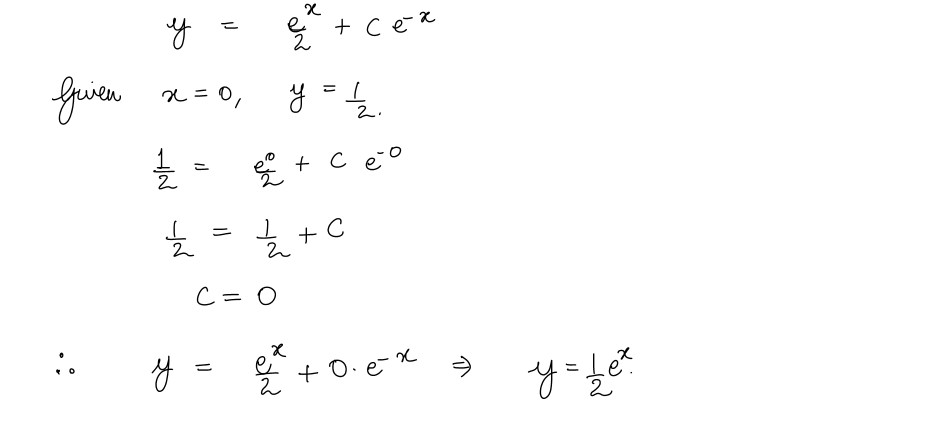 y = e^x/2 + c e^-x
Given x = 0, y = 1/2.
1/2 = e^0/2 + c e^-0
1/2 = 1/2 + c
c = 0
∴ y = e^x/2 + 0. e^-x ⇒ y = 1/2 e^x.